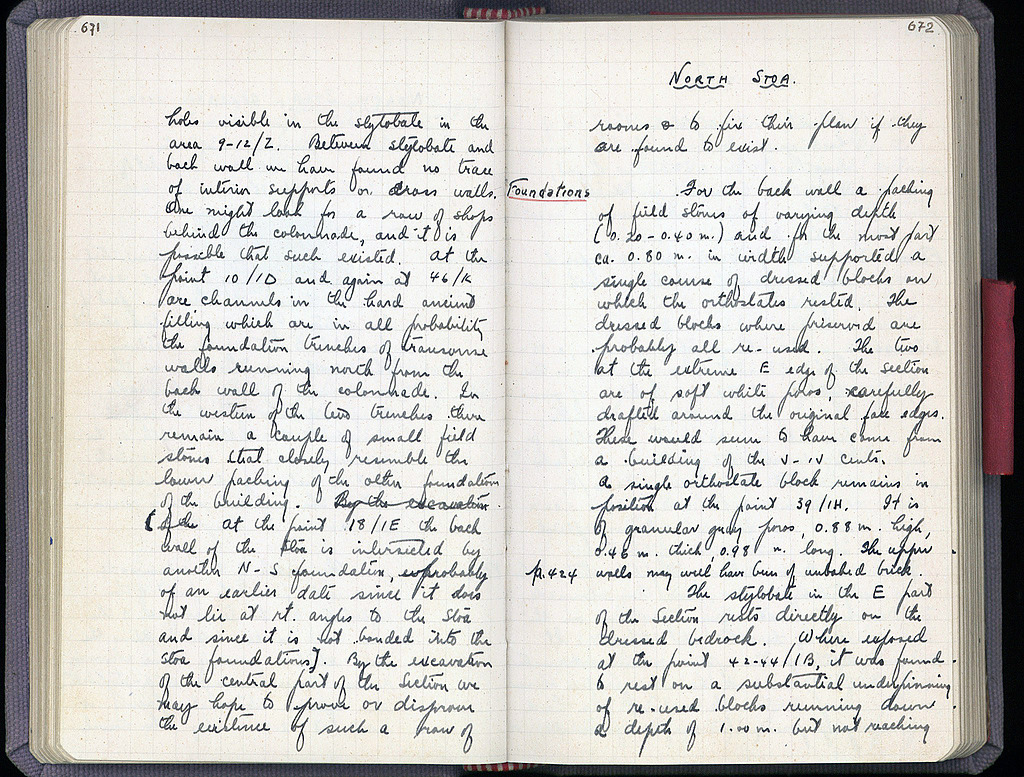 671
holes visible in the stylobate in the
area 9-12/Z. Between stylobate and
back wall we have found no trace
of interior supports or cross walls.
One might look for a row of shops
behind the colonnade, and it is
possible that such existed. At the
point 10/ID and again at 46/K
are channels in the hard ancient
filling which are in all probability
the foundation trenches of transverse
walls running north from the
back wall of the colonnade. In
the western of the two trenches there
remain a couple of small field
stones that closely resemble the
lower packing of the other foundations
of the building. By the excavation
[of the at the point 18/IE the back
wall of the stoa is intersected by
another N-S foundation, probably
of an earlier date since it does
not lie at rt. angles to the Stoa
and since it is not bonded into the
stoa foundations]. By the excavation
of the central part of the Section we
may hope to prove or disprove
the existence of such a row of
672
NORTH STOA.
rooms & to fix their plan if they
are found to exist.
Foundations
For the back wall a packing
of field stones of varying depth
(0.20-0.40 m.) and for the most part
ca. 0.80 m. in width supported a
single course of dressed blocks on
which the orthostates rested. The
dressed blocks where preserved are
probably all re-used. The two
at the extreme E edge of the section
are of soft white poros, carefully
drafted around the original face edges.
These would seem to have come from
a building of the V-IV cents.
A single orthostate block remains in
position at the point 39/IH. It is
of granular gray poros, 0.88 m. high,
0.46 m. thick, 0.98 m. long. The upper
p. 424
walls may well have been of unbaked brick.
The stylobate in the E part
of the Section rests directly on the
dressed bedrock. Where exposed
at the point 42-44/IB, it was found
to rest on a substantial underpinning
of re-used blocks running down
a depth of 1.00 m. but not reaching